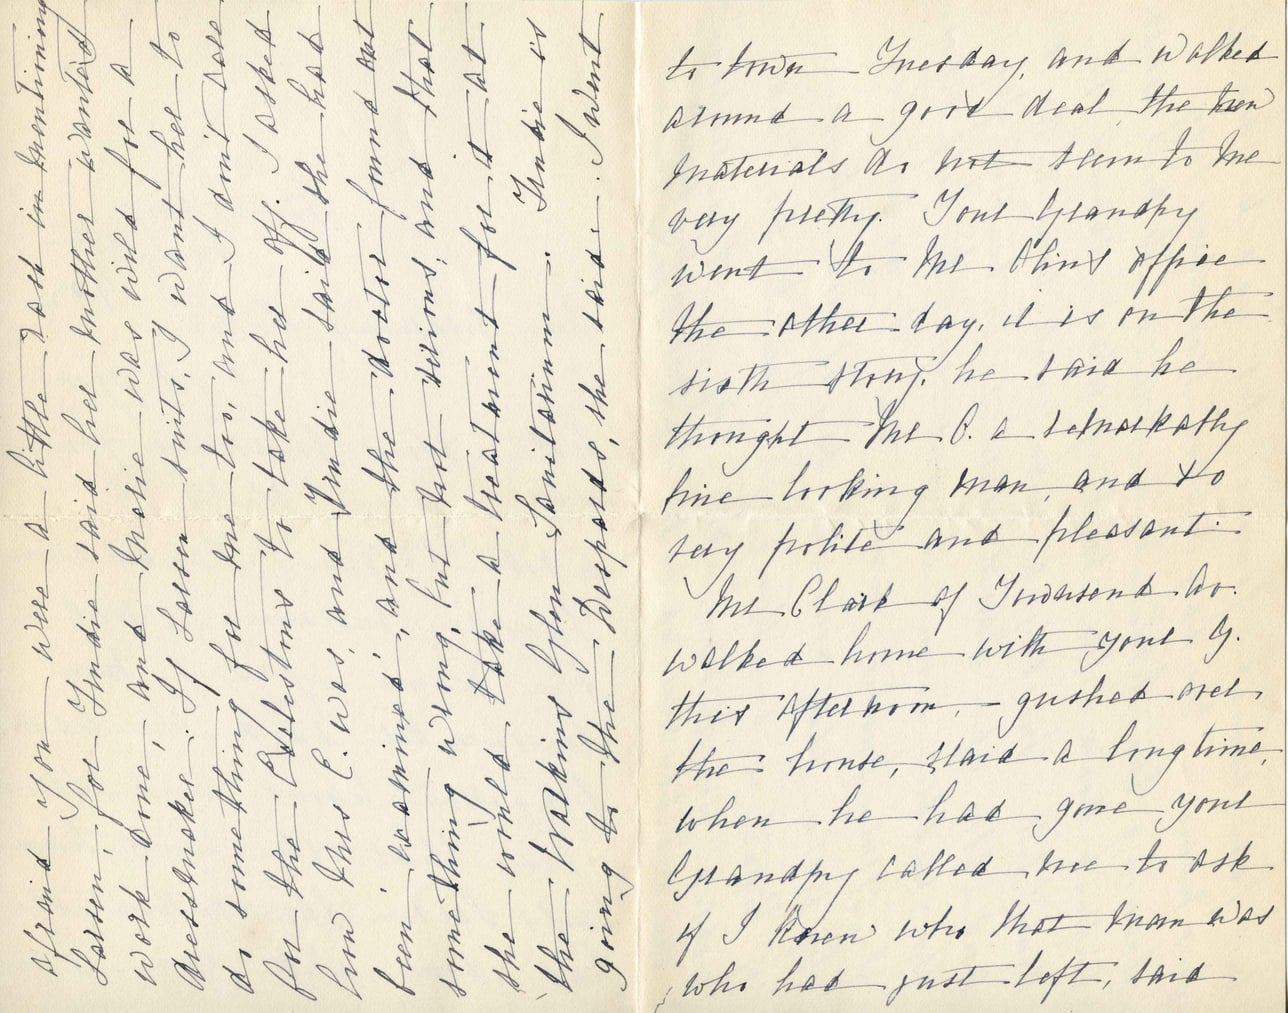 afraid you were a little rash in mentioning
Larsen, for Trudie said her mother wanted
work done, and Marie was wild for a
dressmaker. If Larsen suits, I want her to
do something for me too, and I don't care
for the Coelestons to take her off. I asked
how Mrs C. was, and Trudie said she had
been examined, and the doctor found out
something wrong, but not serious, and that
she would take a treatment for it at
the Watkins Glen Sanitarium. Trudie is
going to the Despards, she said. I went
to town Tuesday, and walked
around a good deal, the new
materials do not seem to me
very pretty. Your Grandpy
went to Mr Olin's office
the other day, it is on the
sixth story, he said he
thought Mr O. a remarkably
fine looking man, and so
very polite and pleasant.
Mr Clark of Townsend Av.
walked home with your G.
this afternoon, – gushed over
the house, staid a long time,
when he had gone your
Grandpy called me to ask
if I knew who that man was
who had just left, said